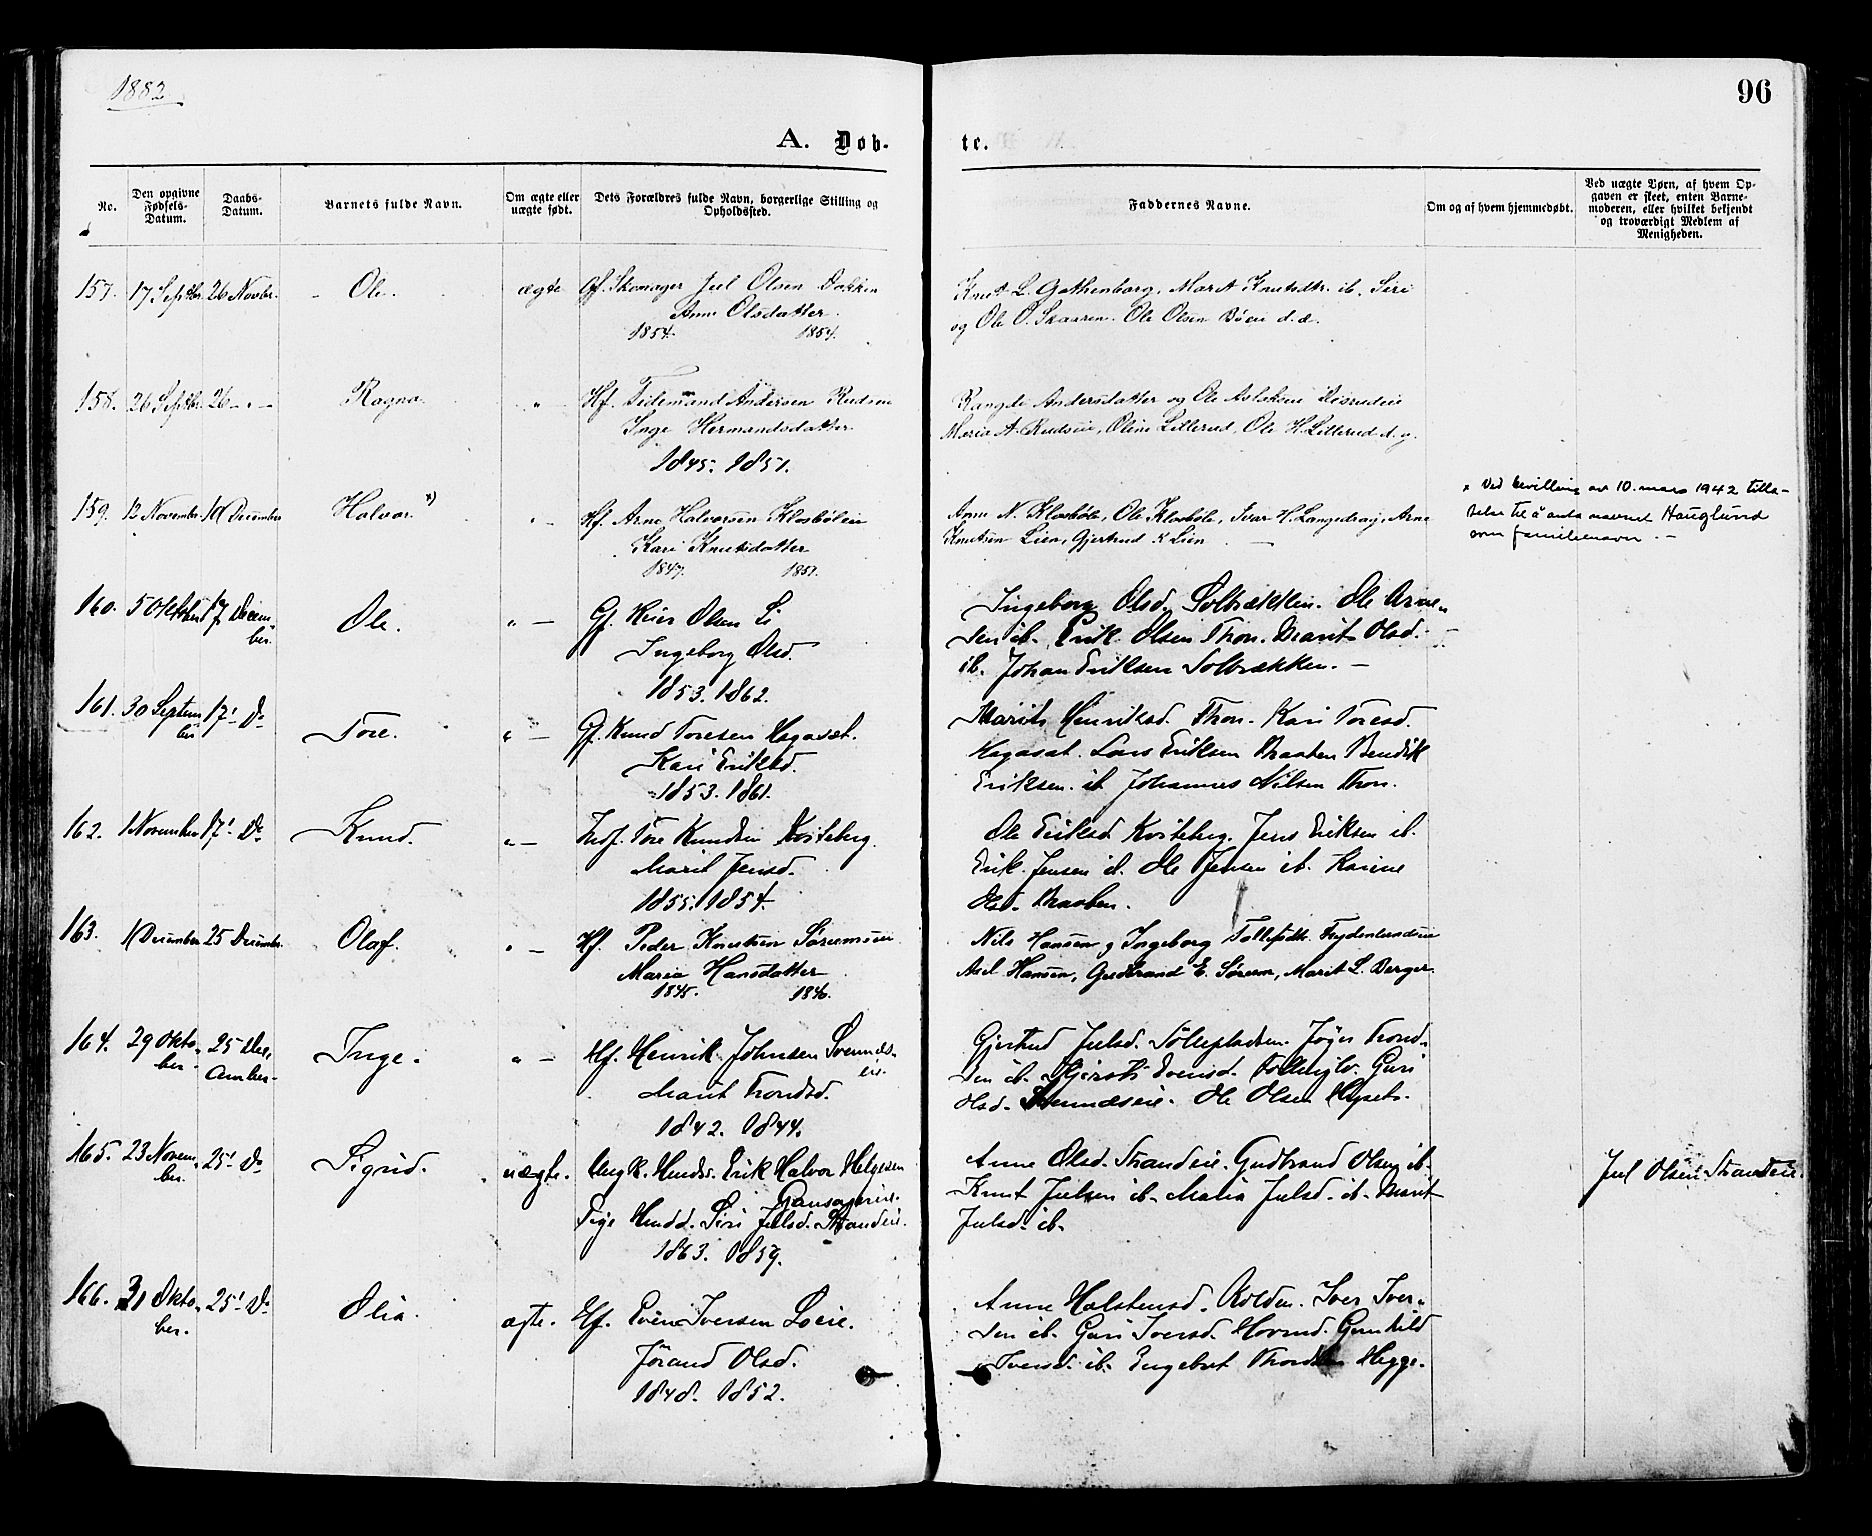 1882
96
A. Døb-
te.
No.
Den opgivne Fødsels-Datum.
Daabs-Datum.
Barnets fulde Navn.
Om ægte eller uægte født.
Dets Forældres fulde Navn, borgerlige Stilling og Opholdssted.
Faddernes Navne.
Om og af hvem hjemmedøbt.
Ved uægte Børn, af hvem Op-
gaven er skeet, enten Barne-
moderen, eller hvilket bekjendt
og troværdigt Medlem af
Menigheden.
157. 17 Septbr. 26 Novbr. Ole. ægte Gf. Skomager Juel Olsen Dokken
Anne Olsdatter.
1854. 1854.
Knut L. Gothenborg, Marit Knutsdtr. ib. Siri
og Ole O. Skaaren. Ole Olsen Böeie d.æ.
158. 26 Septbr. 26 - " - Ragna. " Hf. Tidemand Andersen Rudseie
Inge Hermandsdatter
1845. 1851.
Rangdi Andersdatter og Ole Aslaksen
Maria A. Rudseie, Oline Lillerud, Ole H. Lillerud d.y.
159. 12 November. 10 December Halvor x) " - Hf. Arne Halvorsen Klosböleie
Kari Knutsdatter
1847. 1851.
Anne N. Klosböle, Ole Klosböle, Ivar H. Langedrag, Arne
Knutsen Lien, Gjertrud K Lien
x Ved bevilling av 10. mars 1942 tilla-
telse til å anta navnet Hauglund
som familienavn. -
160. 5 Oktober 17 Decem-
ber. Ole. " - Gf. Olsen Li
Ingeborg Olsd.
1853. 1862.
Ingeborg Olsd. Solbrækken. Ole Arne-
sen ib. Erik Olsen Thon. Marit Olsd.
ib. Johan Eriksen Solbrækken. -
161. 30 Septem
ber 17' Do Tore. " - Gf. Knud Toresen Hagaset.
Kari Eriksd.
1853. 1861.
Marit Henriksd. Thon. Kari Toresd.
Hagaset. Lars Eriksen Braaten Bendik
Eriksen. ib Johannes Nilsen Thon.
162. 1 November 17' Do Knud. " - Indf. Tore Knudsen Kviteberg.
Marit Jensd.
1855. 1854.
Ole Eriksd Kviteberg. Jens Eriksen ib.
Erik Jensen ib. Ole Jensen ib. Karine
Olsd. Braaten.
163. 1 December 25 December. Olaf. " - Hf. Peder Knutsen Sörumseie
Maria Hansdatter
1845. 1846.
Nils Hansen og Ingeborg Tollefsdtr. Frydenlundseie
Axel Hansen, Gudbrand E. Sörum, Marit L. Berger.
164. 29 Okto-
ber. 25 Dec-
ember. Inge. " - Hf. Henrik Johnsen Svennes-
eie.
Marit Trondsd.
1842. 1844.
Gjertrud Julsd. Sollepladsen. Trond-
sen ib. Kjersti Svensd. Guri
Olsd. Svennæseie. Ole Olsen
165. 23 Novem-
ber. 25' Do Sigrid. uægte. Ungk. Huuds. Erik Halvor Helgesen
Gausagereie.
Pige Huudd. Siri Julsd. Strandeie.
1863. 1859.
Anne Olsd. Strandeie. Gudbrand Olsen ib.
Knut Julsen ib. Malia Julsd. ib. Marit
Julsd. ib.
Jul Olsen Strandeie.
166. 31 Okto-
ber. 25' Do Olia. ægte. Hf. Even Iversen Loeie.
Jørand Olsd.
1848. 1852.
Anne Halstensd. Rolden. Iver Iver-
sen ib. Guri Iversd. Hovrud. Gunhild
Iversd. ib. Engebret Thordsen Hegge.